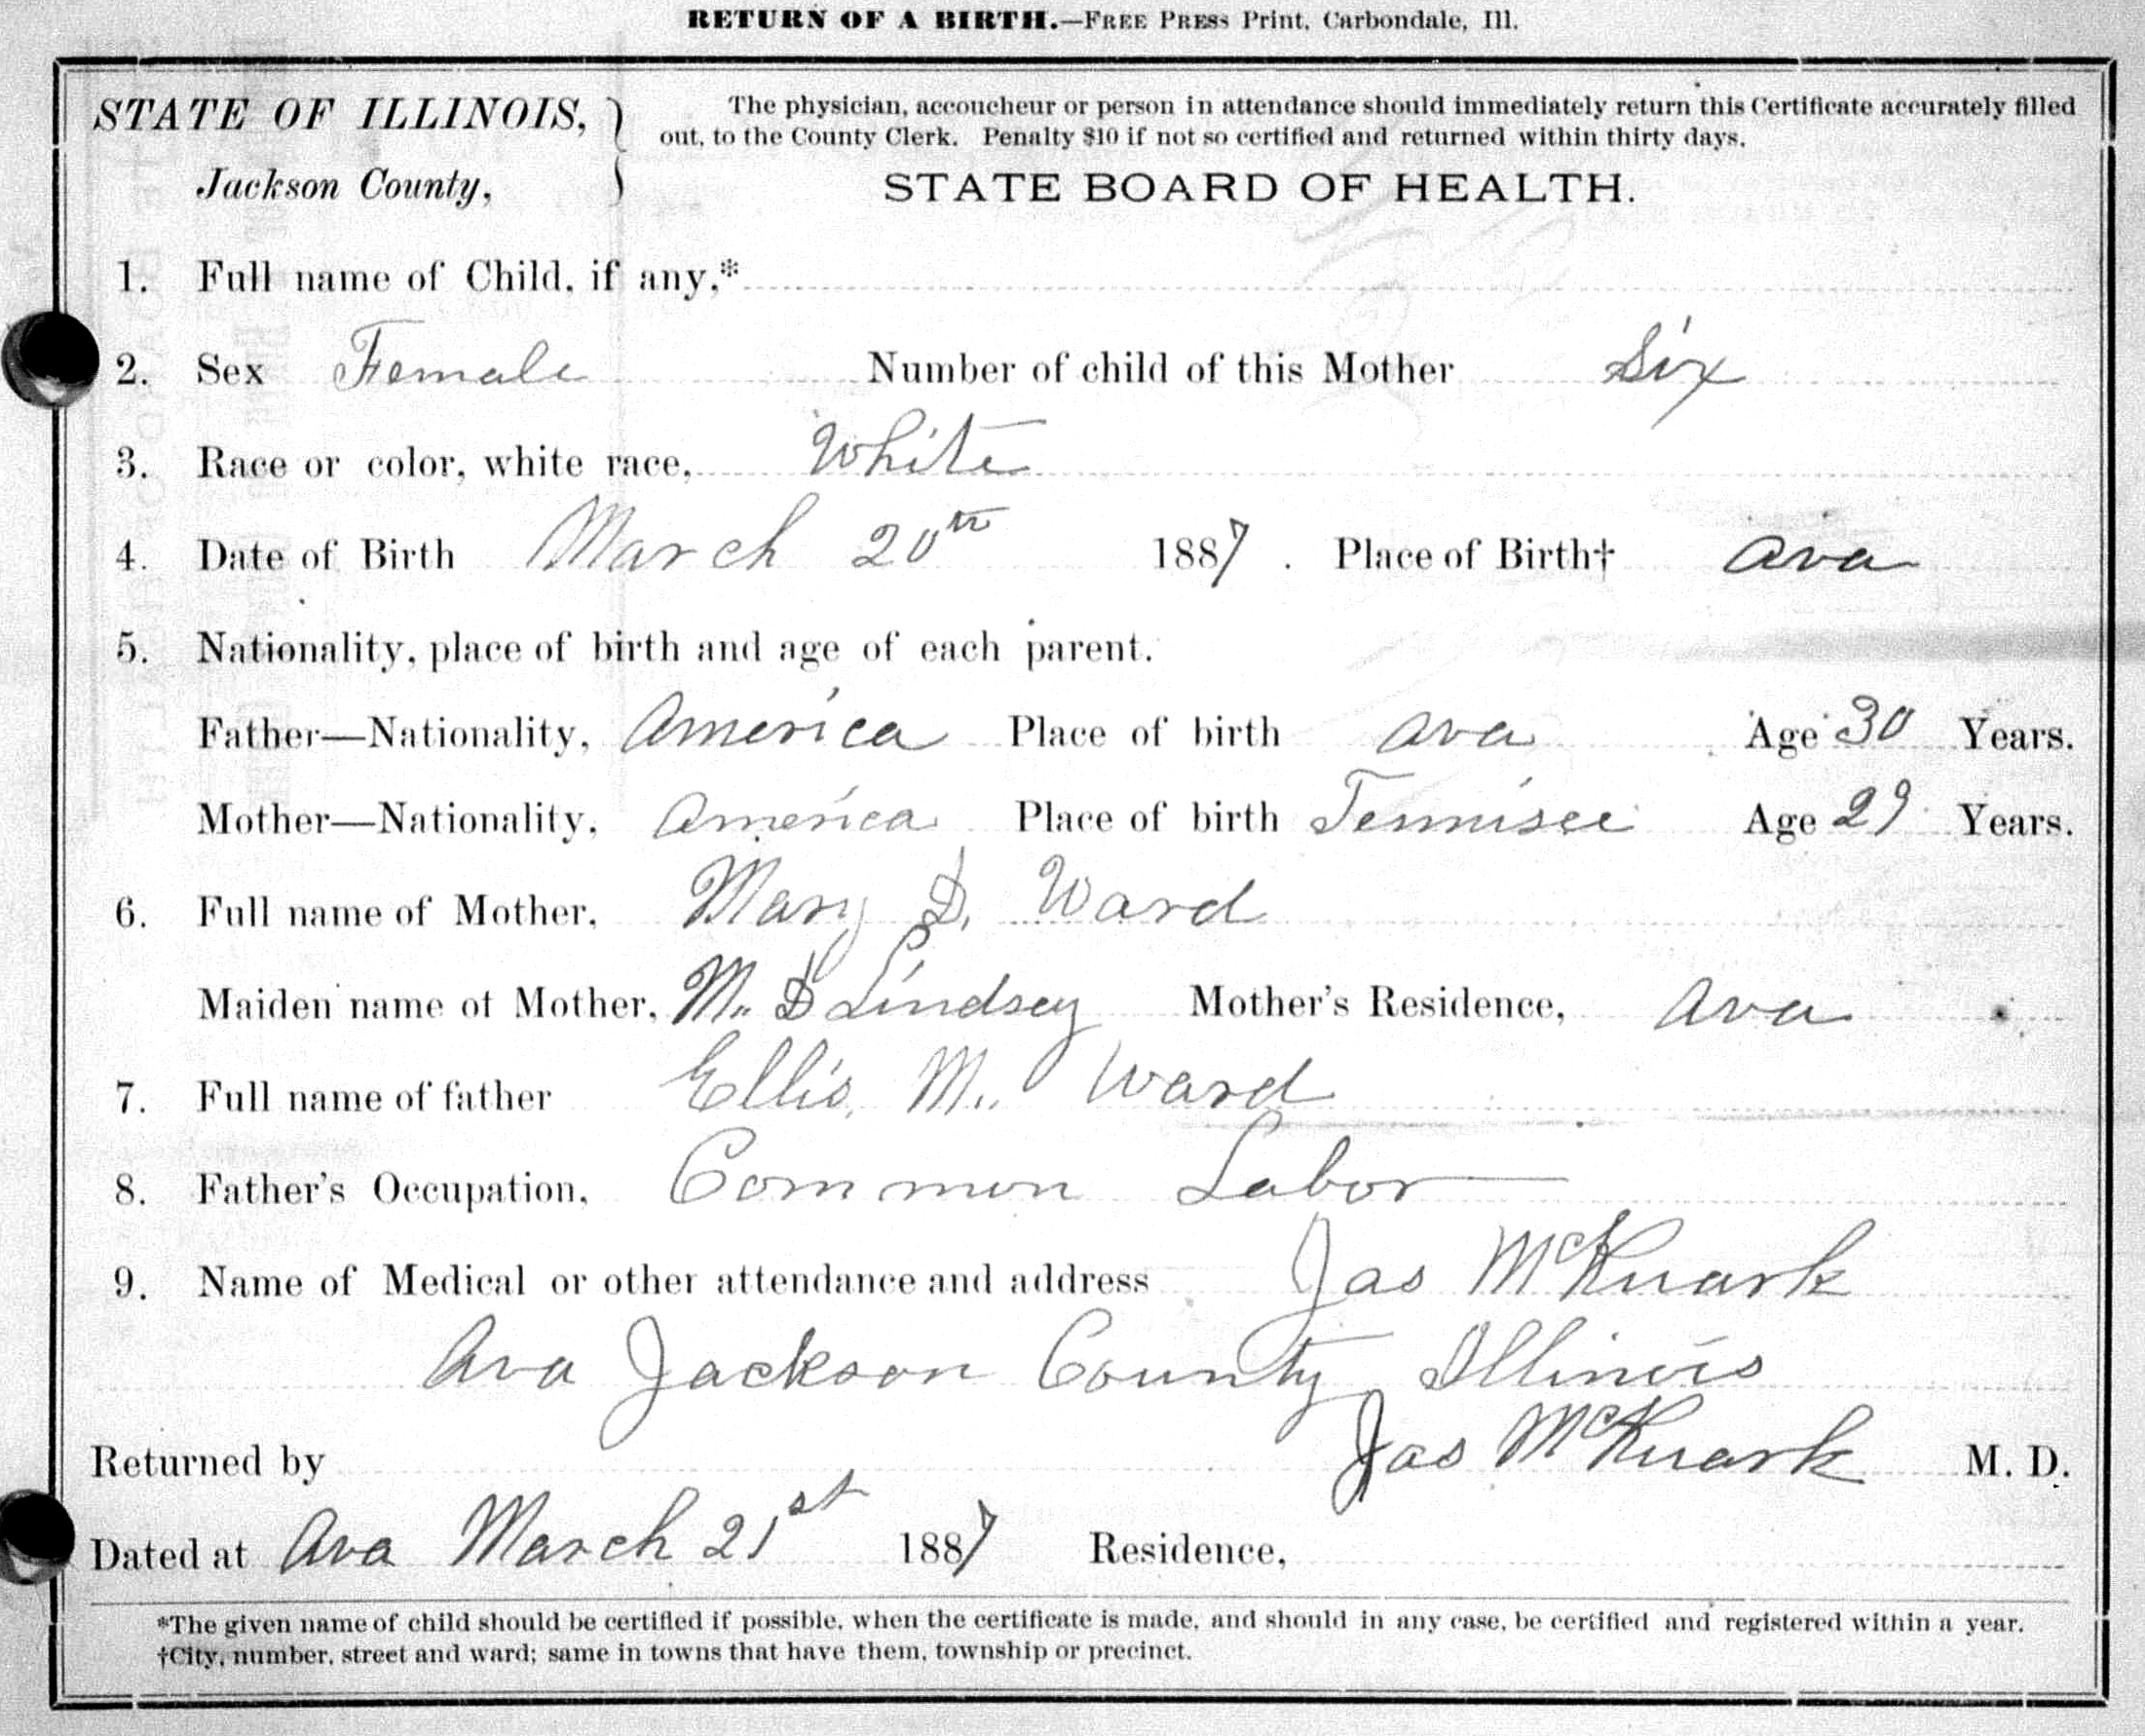 RETURN OF A BIRTH.—FREE PRESS Print, Carbondale, Ill.
STATE OF ILLINOIS, } The physician, accoucheur or person in attendance should immediately return this Certificate accurately filled
out, to the County Clerk. Penalty $10 if not so certified and returned within thirty days.
Jackson County, ) STATE BOARD OF HEALTH.
1. Full name of Child, if any,*
2. Sex Female Number of child of this Mother Six
3. Race or color, white race, White
4. Date of Birth March 20th 1887. Place of Birth† Ava
5. Nationality, place of birth and age of each parent.
Father—Nationality, America Place of birth Ava Age 30 Years.
Mother—Nationality, America Place of birth Tennisee Age 29 Years.
6. Full name of Mother, Mary D. Ward
Maiden name of Mother, M. D Lindsey Mother's Residence, Ava
7. Full name of father Ellis. M. Ward
8. Father's Occupation, Common Labor
9. Name of Medical or other attendance and address Jas McKuark
Ava Jackson County Illinois
Returned by Jas McKuark M. D.
Dated at Ava March 21st 1887 Residence,
*The given name of child should be certified if possible, when the certificate is made, and should in any case, be certified and registered within a year.
†City, number, street and ward; same in towns that have them, township or precinct.